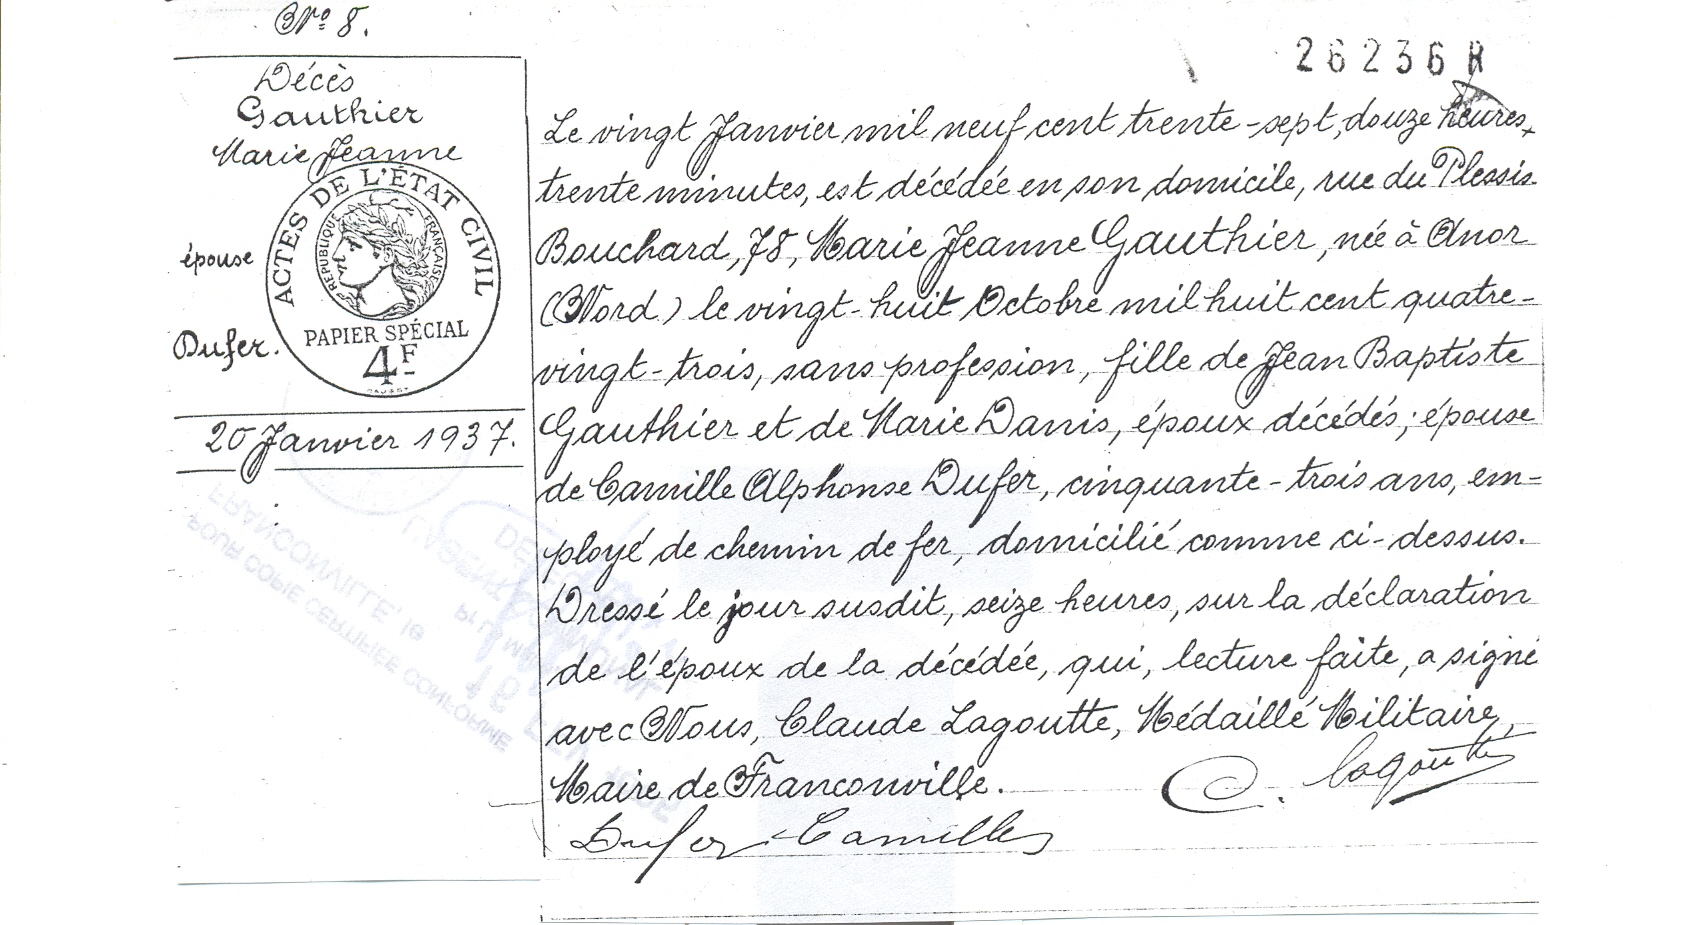 N° 8.
26236 R
Décès
Gauthier
Marie Jeanne
épouse
Dufer.
ACTES DE L'ÉTAT CIVIL
RÉPUBLIQUE FRANÇAISE
PAPIER SPÉCIAL
4F
20 Janvier 1937.
Le vingt Janvier mil neuf cent trente-sept, douze heures,
trente minutes, est décédée en son domicile, rue du Plessis
Bouchard, 78, Marie Jeanne Gauthier, née à Anor
(Nord) le vingt-huit Octobre mil huit cent quatre-
vingt-trois, sans profession, fille de Jean Baptiste
Gauthier et de Marie Danis, époux décédés; épouse
de Camille Alphonse Dufer, cinquante-trois ans, em=
ployé de chemin de fer, domicilié comme ci-dessus.
Dressé le jour susdit, seize heures, sur la déclaration
de l'époux de la décédée, qui, lecture faite, a signé
avec Nous, Claude Lagoutte, Médaillé Militaire,
Maire de Franconville.
C. Lagoutte
Dufer Camille
POUR COPIE CERTIFIÉE CONFORME
FRANCONVILLE, le